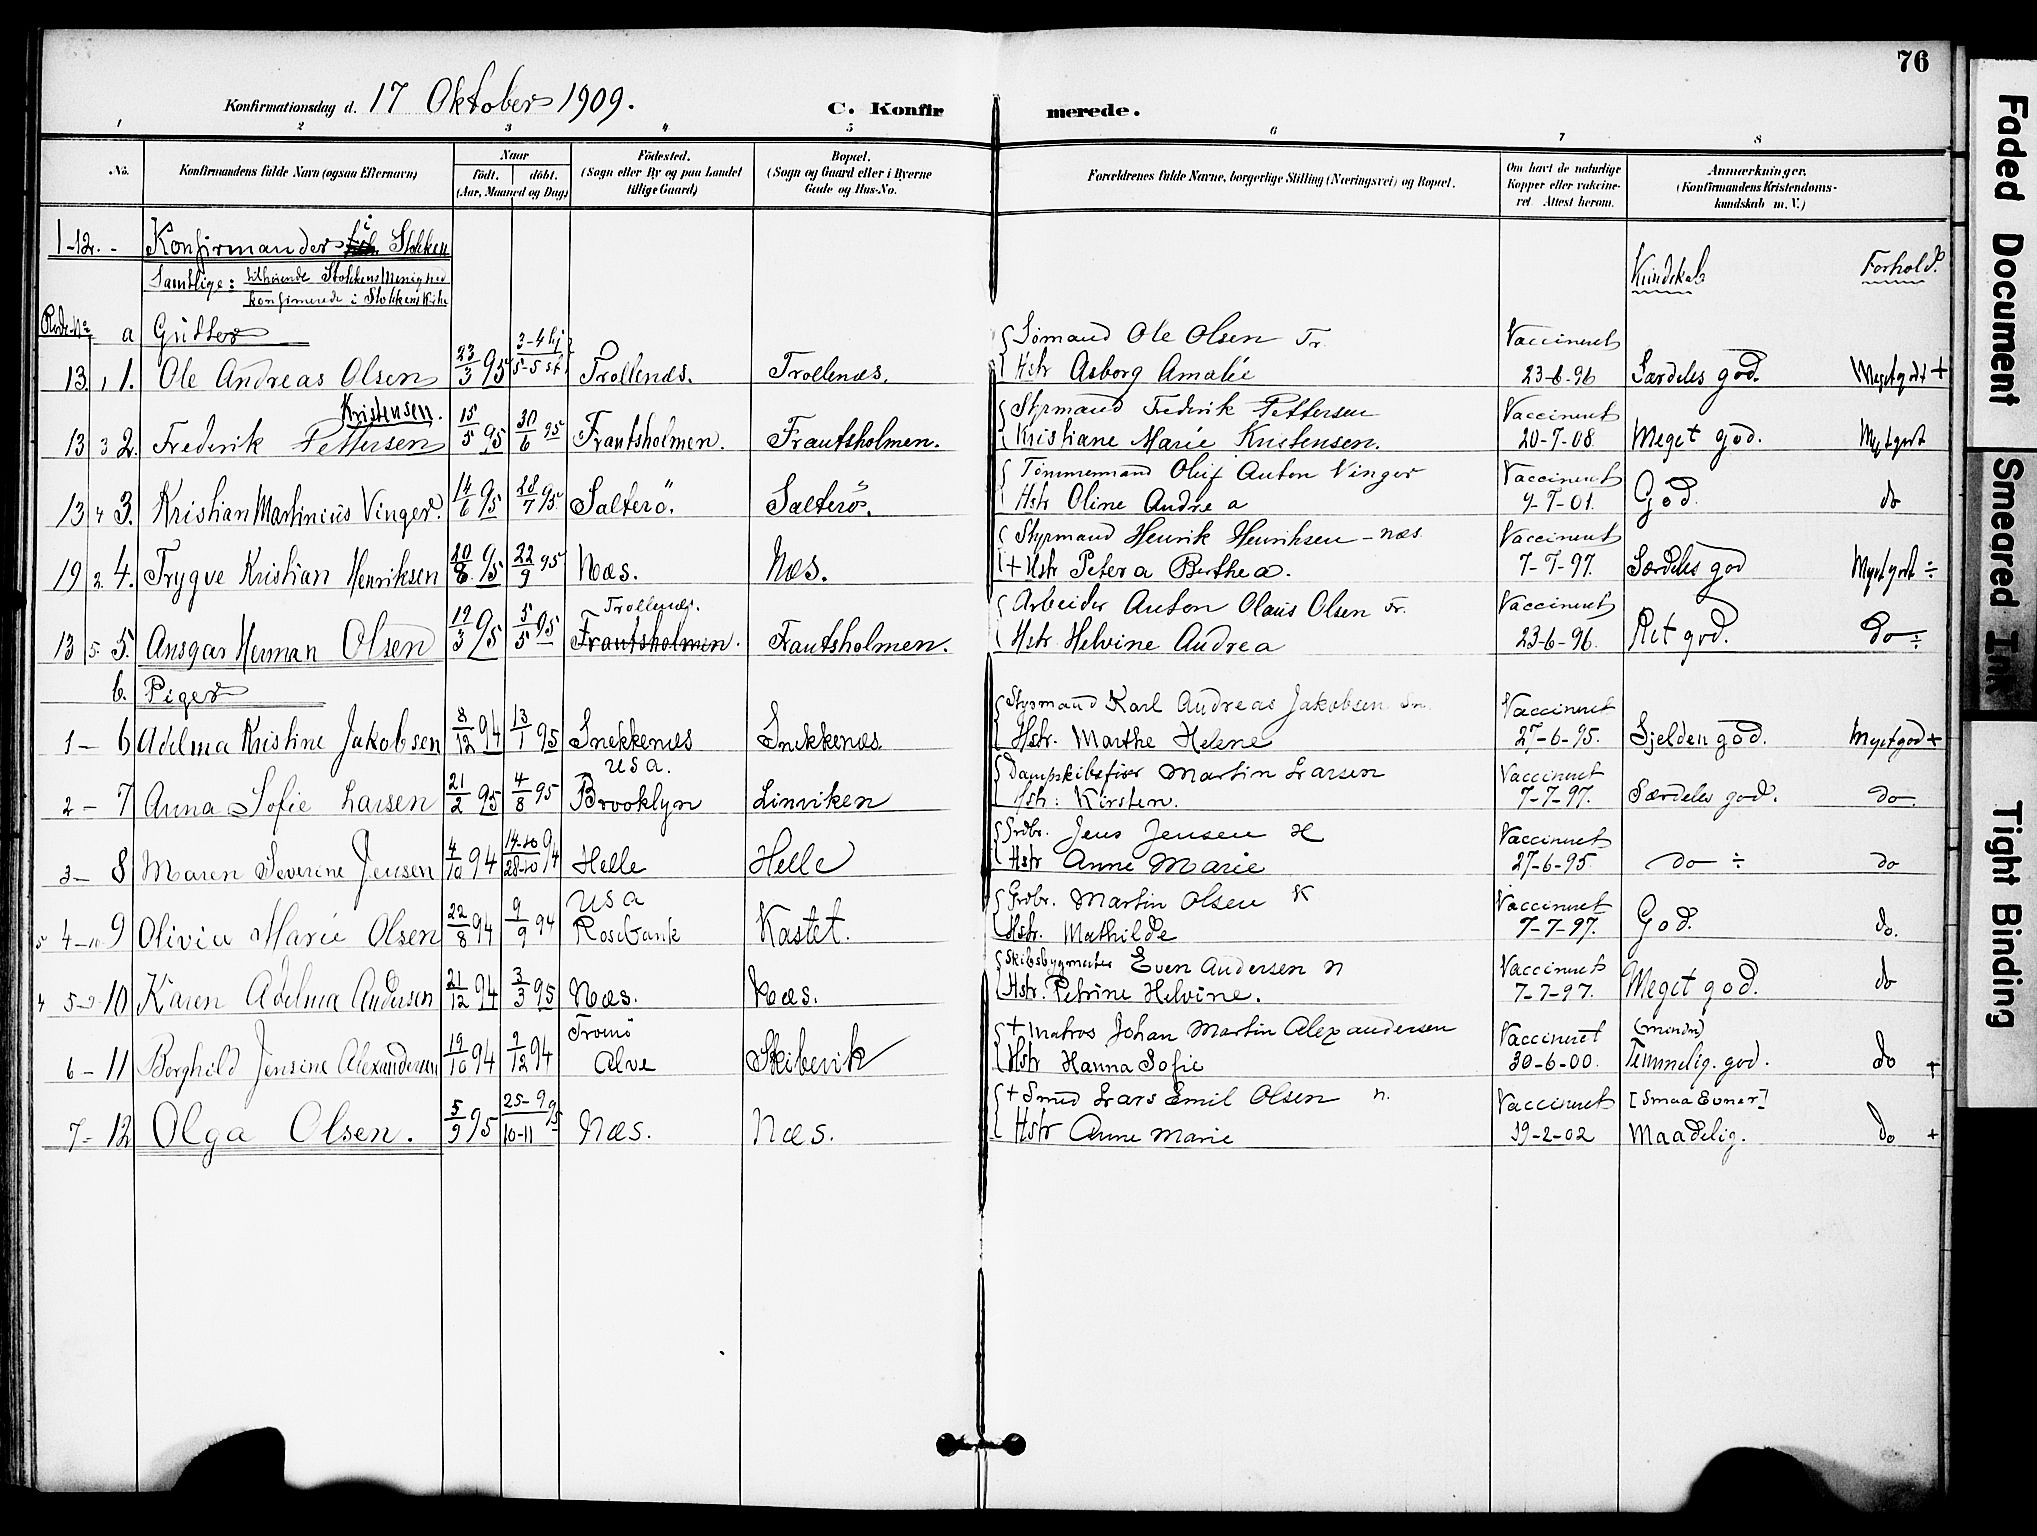 76
Konfirmationsdag d. 17 Oktober 1909.
C. Konfirmerede.
1 2 3 4 5 6 7 8
No.
Konfirmandens fulde Navn (ogsaa Efternavn)
Naar
födt. döbt.
(Aar, Maaned og Dag)
Födested.
(Sogn eller By og paa Landet
tillige Gaard)
Bopæl.
(Sogn og Gaard eller i Byerne
Gade og Hus-No.
Forældrenes fulde Navne, borgerlige Stilling (Næringsvei) og Bopæl.
Om havt de naturlige
Kopper eller vakcine-
ret Attest herom.
Anmærkninger.
(Konfirmandens Kristendoms-
kundskab m. V.)
1-12. - Konfirmander i Stokken
Samtlige: tilhörende Stokkens Menighed
konfirmerede i Stokkens Kirke
Kundskab Forhold.
a Gutter
13. 1 1. Ole Andreas Olsen 23/3 95 3-4 hj 5-5 st Trollenæs. Trollenæs. Sömand Ole Olsen Tr. Hstr Asborg Amalie Vaccineret 23-6-96 Særdeles god. Meget godt +
13 3 2. Frederik Pettersen Kristensen. 15/5 95 30/6 95 Frautsholmen. Frautsholmen. Styrmand Frederik Pettersen Kristiane Marie Kristensen. Vaccineret 20-7-08. Meget god. Meget godt
13 4 3. Kristian Martinius Vinger. 14/6 95 28/7 95. Salterö. Salterö. Tömmermand Oluf Anton Vinger Hstr Oline Andrea Vaccineret 9-7-01. God. do
19 2. 4. Trygve Kristian Henriksen 20/8 95 22/9 95 Næs. Næs. Styrmand Henrik Henriksen - næs + Hstr Petera Berthea. Vaccineret 7-7-97. Særdeles god Meget godt ÷
13 5. 5. Ansgar Herman Olsen 19/3 95 5/5 95 Trollenæs. Frautsholmen. Frautsholmen. Arbeider Anton Olaus Olsen Fr. Hstr Helvine Andrea Vaccineret 23-6-96. Ret god. do ÷
b. Piger
1 - 6 Adelma Kristine Jakobsen 8/12 94 13/1 95 Snekkenæs Snekkenæs Styrmand Karl Andreas Jakobsen Sn. Hstr. Marthe Helene Vaccineret 27-6-95. Sjelden god. Meget god +
2 - 7 Anna Sofie Larsen 21/2 95 4/8 95 USA. Brooklyn Linviken Dampskibsförer Martin Larsen Hstr: Kirsten. Vaccineret 7-7-97. Særdeles god. do
3 - 8 Maren Severine Jensen 4/10 94 14-10 28-10 94 Helle Helle Grdbr. Jens Jensen H Hstr Anne Marie Vaccineret 27-6-95. do ÷ do
5 4 - 10 9 Olivia Marie Olsen 22/8 94 9/9 94 USA Rosebank Kastet. Grdbr. Martin Olsen K Hstr. Mathilde Vaccineret 7-7-97. God. do.
4 5 - 9 10 Karen Adelma Andersen 21/12 94 3/3 95 Næs. Næs. Skibsbygmester Even Andersen N Hstr. Petrine Helvine. Vaccineret 7-7-97. Meget god. do
6 - 11 Borghild Jensine Alexandersen 19/10 94 9/12 94 Tromö Alve Skibevik + Matros Johan Martin Alexandersen Hstr Hanna Sofie Vaccineret 30-6-00. (mindre) Temmelig god. do +
7 - 12 Olga Olsen. 5/9 95 25-9 10-11 95 Næs. Næs. + Smed Lars Emil Olsen n. Hstr Anne Marie Vaccineret 19-2-02 [Smaa Evner] Maadelig. do +
Faded Document
Smeared Ink
Tight Binding